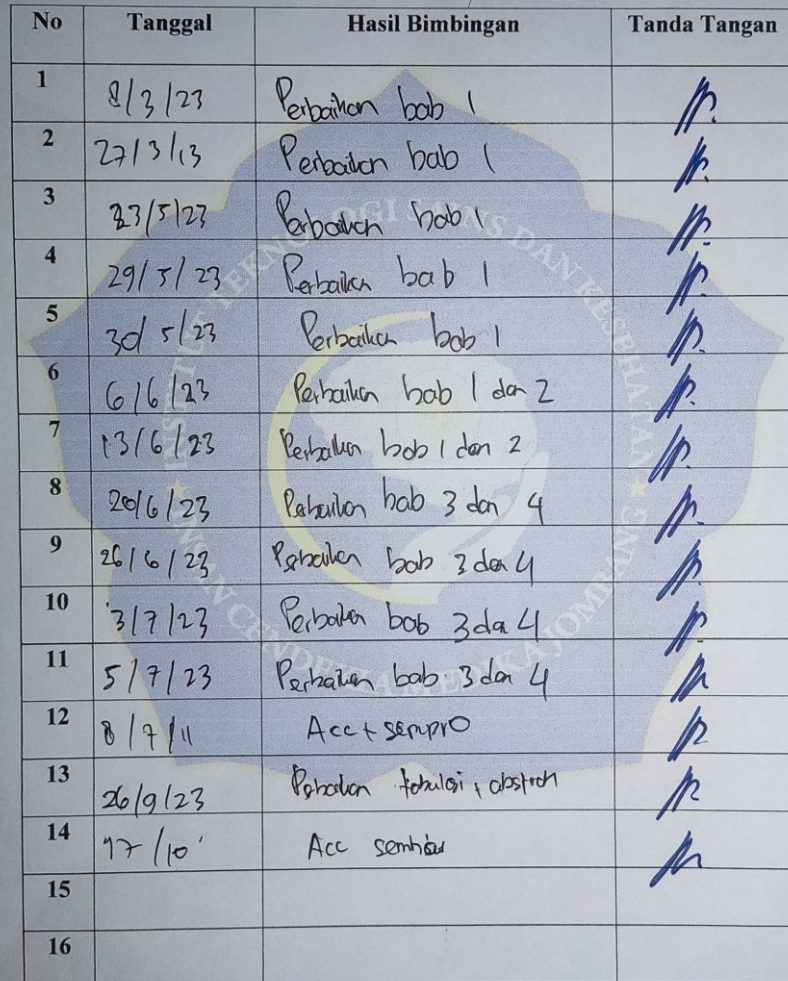 No Tanggal Hasil Bimbingan Tanda Tangan
1 8/3/23 Perbaikan bab 1
2 27/3/13 Perbaikan bab 1
3 23/5/23 Perbaikan bab 1
4 29/5/23 Perbaikan bab 1
5 30/5/23 Perbaikan bab 1
6 6/6/23 Perbaikan bab 1 dan 2
7 13/6/23 Perbaikan bab 1 dan 2
8 20/6/23 Perbaikan bab 3 dan 4
9 26/6/23 Perbaikan bab 3 dan 4
10 3/7/23 Perbaikan bab 3 da 4
11 5/7/23 Perbaikan bab 3 dan 4
12 8/7/11 Acc + sempro
13 26/9/23 Perbaikan tabulasi, abstrak
14 17/10 Acc semhas
15
16
INSTITUT TEKNOLOGI SAINS DAN KESEHATAN
INSAN CENDEKIA MEDIKA JOMBANG